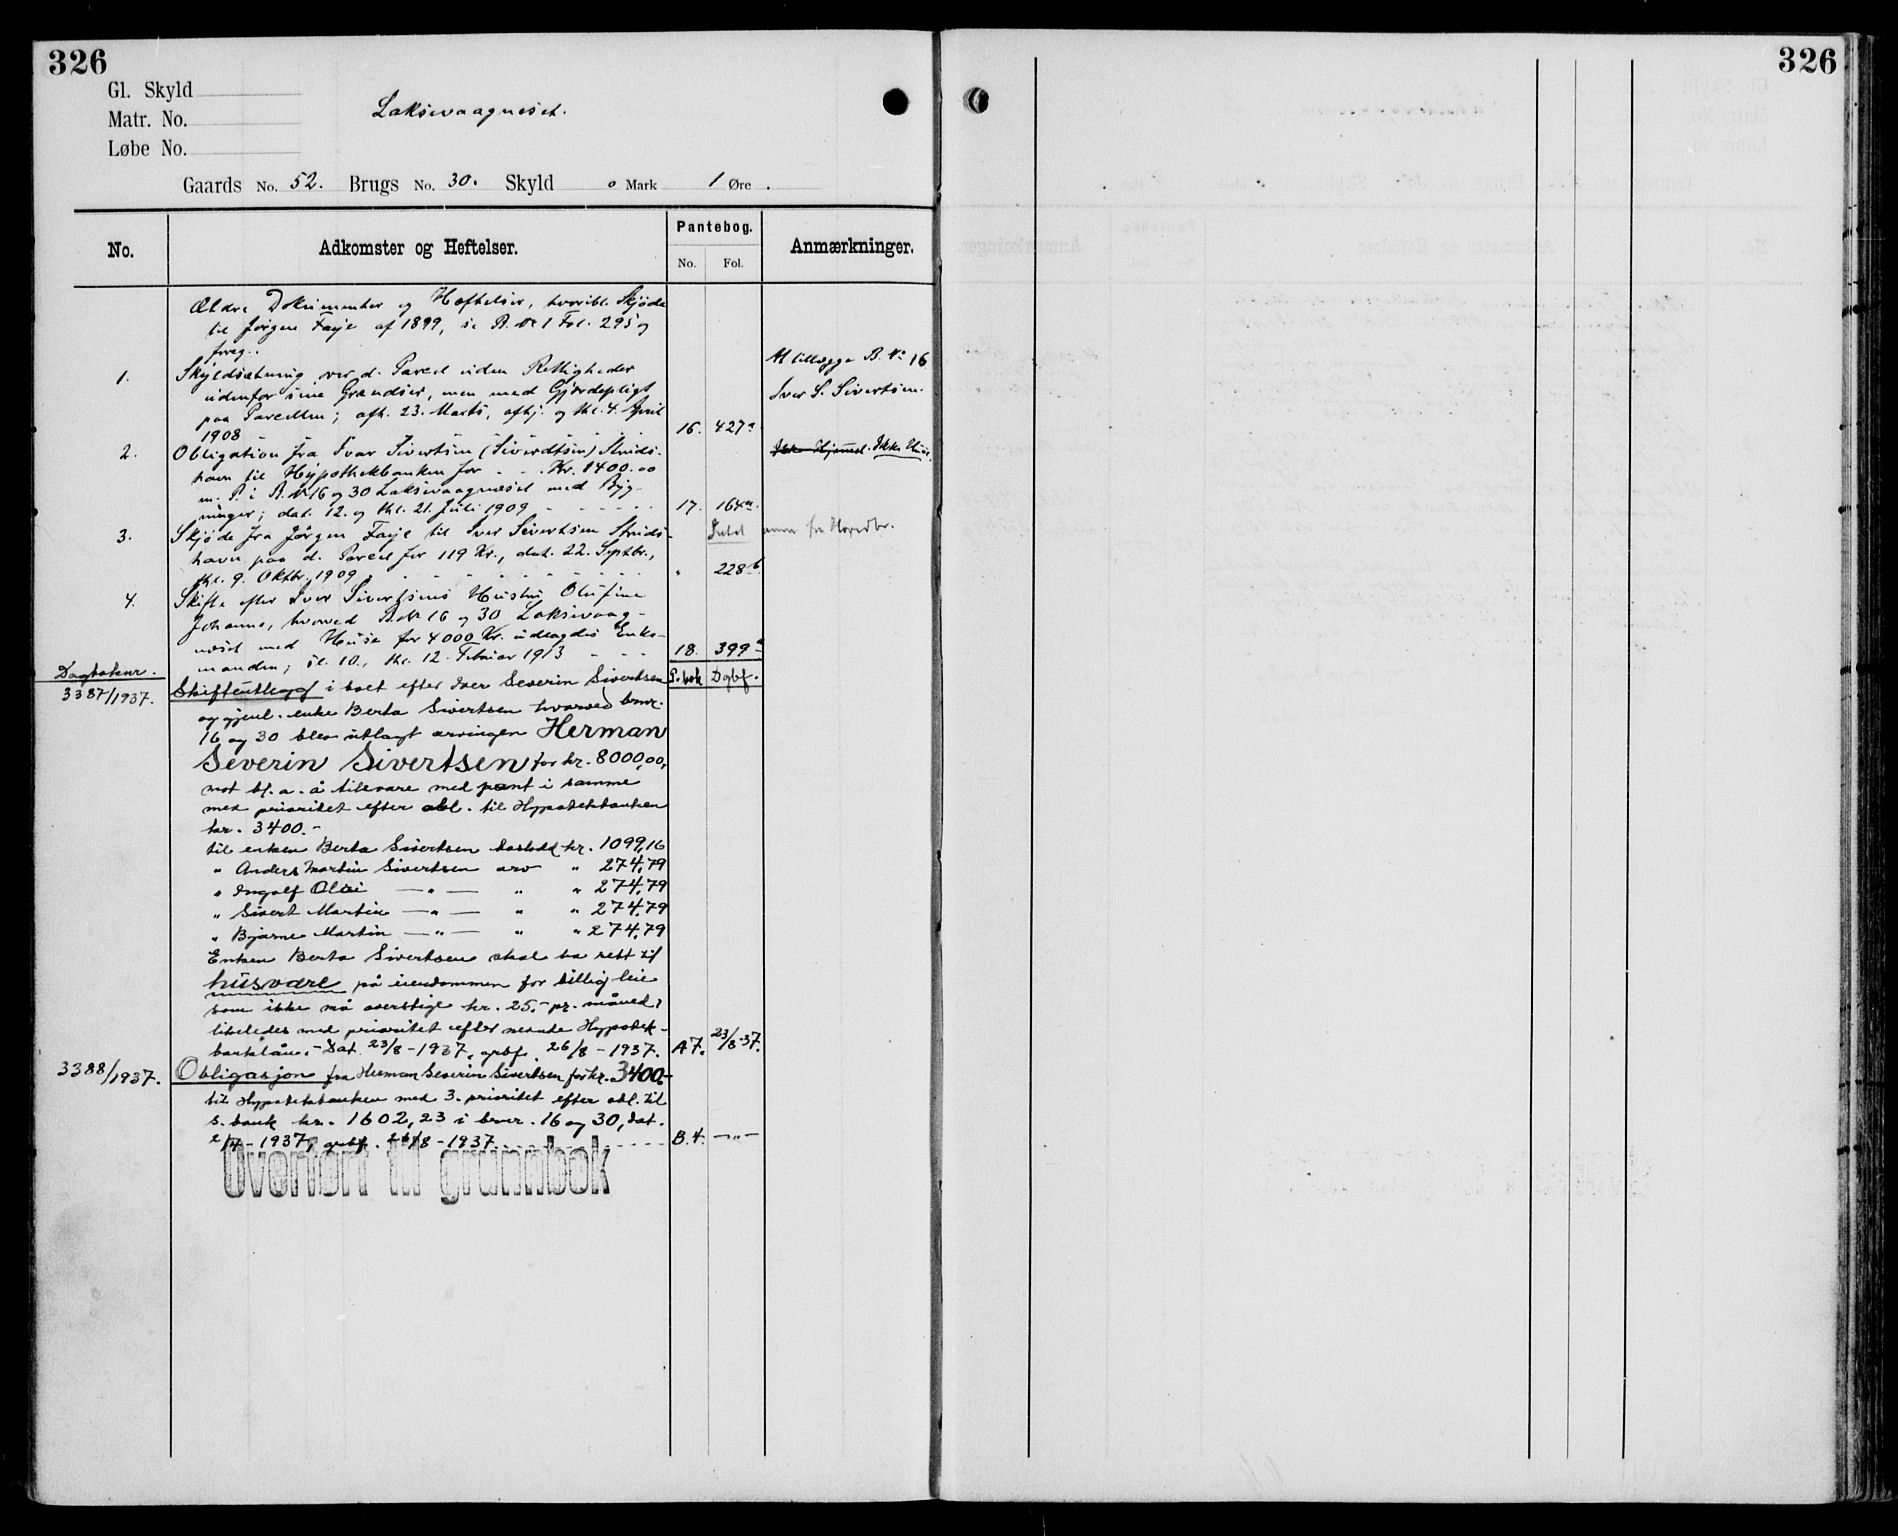 326
326
Gl. Skyld
Matr. No.
Løbe No.
Laksevaagneset.
Gaards No. 52. Brugs No. 30. Skyld 0 Mark 1 Øre.
No. Adkomster og Heftelser. Pantebog. No. Fol. Anmærkninger.
Ældre Dokumenter og Hæftelser, hvoribl. Skjøde
til Jørgen Faye af 1899, se B. № 1 Fol. 295 og
foreg..
1. Skyldsætning over d. Parcel uden Rettigheder
udenfor sine Grændser, men med Gjærdepligt
paa Parcellen; afh. 23. Marts, afhj. og thl. 4. April
1908 16. 427a
At tillægge B. № 16
Iver S. Sivertsen.
2. Obligation fra Ivar Sivertsen (Siverdtsen) Strids-
havn til Hypothekbanken for - - - Kr. 1400.00
m. P. i B. № 16 og 30 Laksevaagneset med Byg-
ninger; dat. 12. og thl. 21. Juli 1909 - - - - - 17. 164a.
3. Skjøde fra Jørgen Faye til Iver Sivertsen Strids-
havn paa d. Parcel for 119 Kr., dat. 22. Septbr.,
thl. 9. Oktbr. 1909 - - - - - - " 228b.
4. Skifte efter Iver Sivertsens Hustru Olufine
Johanne, hvorved B. № 16 og 30 Laksevaag-
neset med Huse for 4000 Kr. udlagdes Enke-
manden; sl. 10., thl. 12. Februar 1913 - - - 18. 399a
Dagboknr. P.bok Dgbf.
3387/1937. Skifteutlegg i boet efter Iver Severin Sivertsen
og gjenl. enke Berta Sivertsen hvorved brnr.
16 og 30 blev utlagt arvingen Herman
Severin Sivertsen for kr. 8000,00,
mot bl. a. å tilsvare med pant i samme
med prioritet efter obl. til Hypotekbanken
kr. 3400.-
til enken Berta Sivertsen boslodd kr. 1099,16
" Anders Martin Sivertsen arv " 274,79
" Ingolf Olai —"— " " 274,79
" Sivert Martin —"— " " 274,79
" Bjarne Martin —"— " " 274,79
Enken Berta Sivertsen skal ha rett til
husvære på eiendommen for billig leie
som ikke må overstige kr. 25,- pr. måned,
likeledes med prioritet efter nevnte Hypotek-
banklån. - Dat. 23/8 - 1937, grbf. 26/8 - 1937. A 7. 23/8-37.
3388/1937. Obligasjon fra Herman Severin Sivertsen for kr. 3400,-
til Hypotekbanken med 3. prioritet efter obl. til
s. bank kr. 1602,23 i brnr. 16 og 30, dat.
2/7 - 1937, grbf. 26/8 - 1937 - - - - B. 4. —"—
Overført til grunnbok